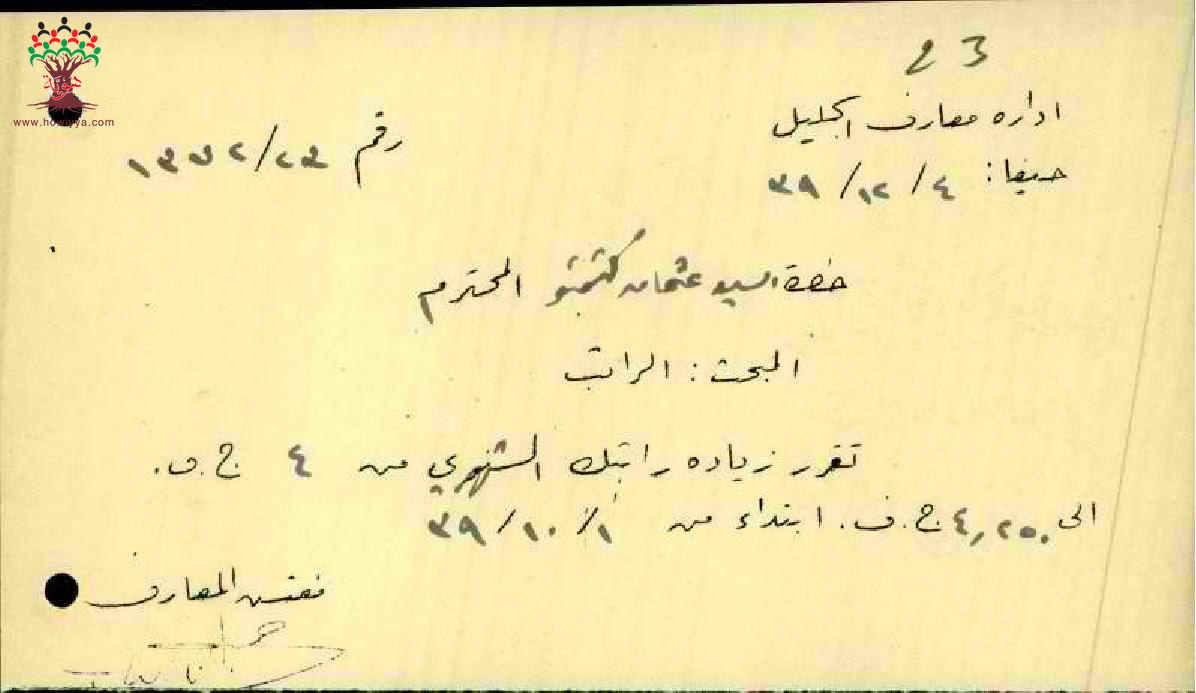 23
اداره معارف الجليل
رقم ١٣٣٢/٢٣
حيفا: ٤/١٢/٣٩
حضرة السيد عثمان المحترم
المبحث: الراتب
تقرر زياده راتبك الشهري من ٤ ج.ف.
الى ٤,٢٥٠ ج.ف. ابتداء من ١/١٠/٣٩
مفتش المعارف
www.howiyya.com